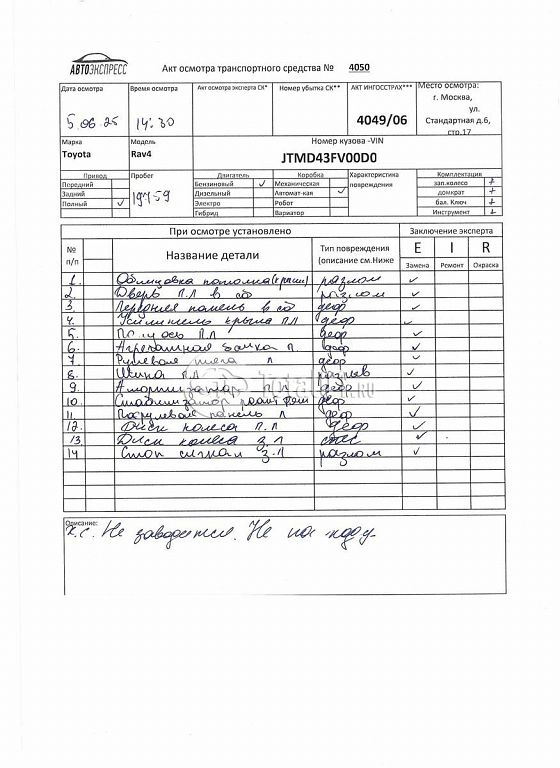 АВТОЭКСПРЕСС
Акт осмотра транспортного средства № 4050
Дата осмотра Время осмотра Акт осмотра эксперта СК* Номер убытка СК** АКТ ИНГОССТРАХ*** Место осмотра:
5.06.25 14:30 4049/06 г. Москва,
ул.
Стандартная д.6,
стр.17
Марка Модель Номер кузова -VIN
Toyota Rav4 JTMD43FV00D0
Привод Пробег Двигатель Коробка Характеристика Комплектация
Передний Бензиновый ✓ Механическая повреждения зап.колесо +
Задний Дизельный Автомат-кая ✓ домкрат +
Полный ✓ Электро Робот бал. Ключ +
Гибрид Вариатор Инструмент +
При осмотре установлено Заключение эксперта
№ п/п Название детали Тип повреждения (описание см.Ниже E I R
Замена Ремонт Окраска
1. разлом ✓
2. Дверь П.Л в сб разлом ✓
3. панель в сб деф ✓
4. Усилитель крыла ПЛ деф ✓
5. П.Л деф ✓
6. Агрегатная балка П. деф ✓
7. Рулевая тяга л деф ✓
8. Шина П.Л разрыв ✓
9. Амортизатор П.Л деф ✓
10. Стабилизатор деф ✓
11. панель Л деф ✓
12. Диск колеса П.Л деф ✓
13 Диск колеса З.Л ✓
14 Стоп сигнал З.Л разлом ✓
Описание:
Не заводится. Не на ходу.